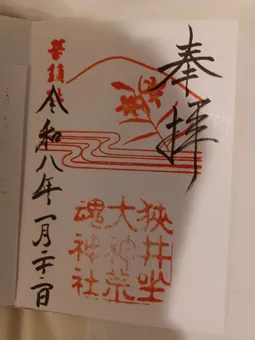 奉拝
狭井坐
大神荒
魂神社
華鎮社
令和八年一月